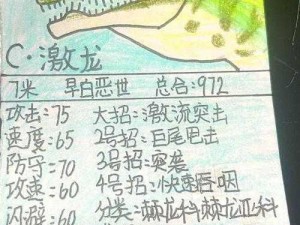 C·激龙
7米 早白恶世 总合:972
攻击=75 大招:激流突击
速度:65 2号招:巨尾甩击
防守=70 3号招:突袭
攻速=60 4号招:快速吞咽
闪避=60 分类:棘龙科棘龙亚科